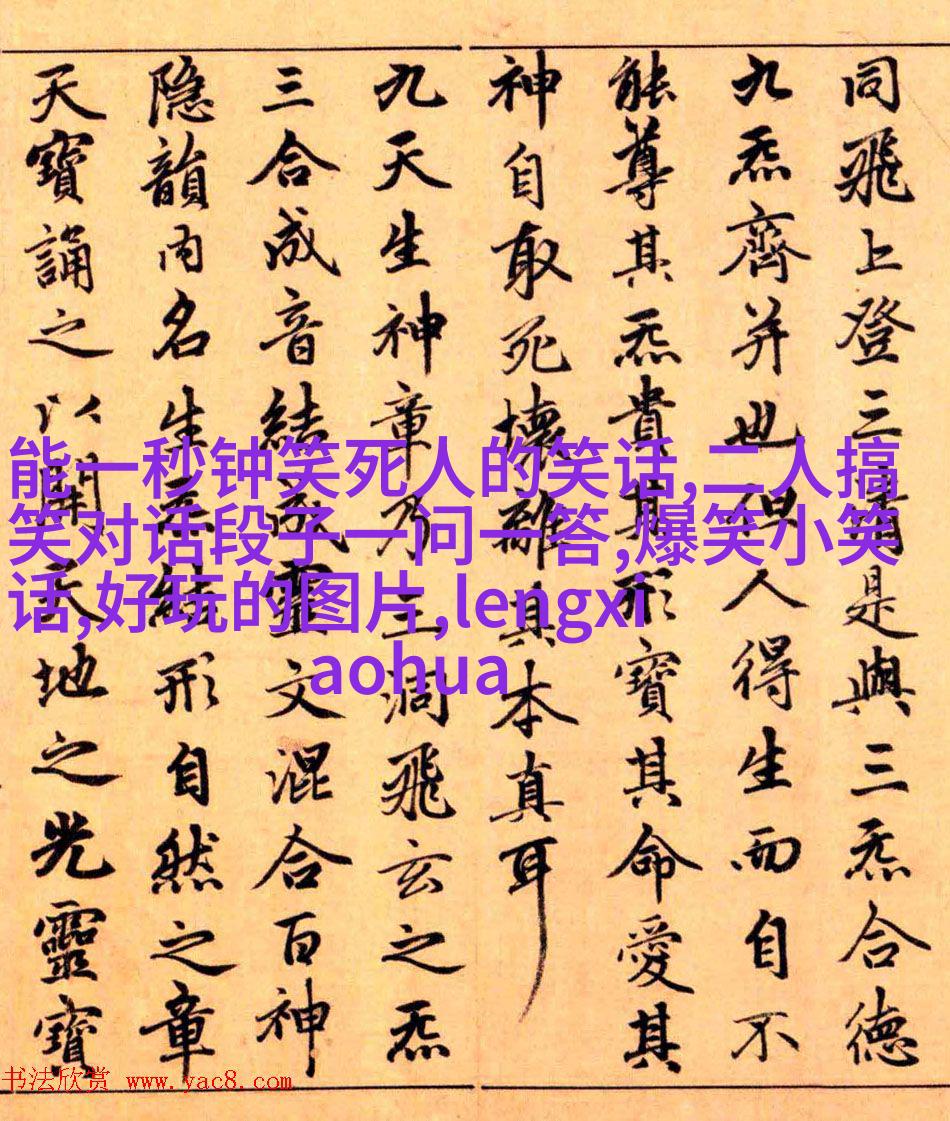 同飛上登三清是與三炁合德
九炁齊并也但人得生而自不
能尊其炁貴其形寶其命愛其
神自取死壞離其本真耳
九天生神章乃三洞飛玄之炁
三合成音結成靈文混合百神
隐韻内名生炁結形自然之章
天寶誦之以開天地之光靈寶
能一秒钟笑死人的笑话,二人搞
笑对话段子一问一答,爆笑小笑
话,好玩的图片,lengxi
aohua
书法欣赏 www.yac8.com